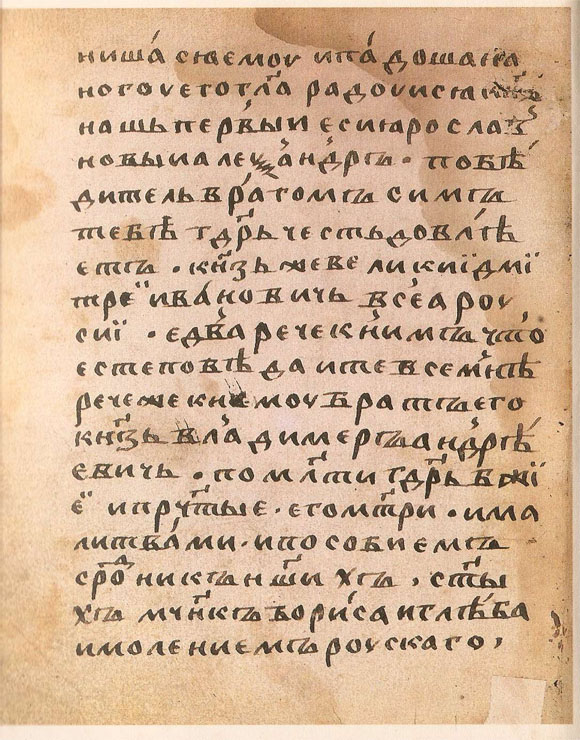 ниша́ сѧ емоу ипа́доша на
ногоу его гл҃а радоуисѧ кнз҃ь
нашь пе́рвыи еси ꙗросла́в
новыи алеѯа́ндръ · побѣ
дитель врагомъ симъ
тебѣ гдр҃ь честь довлѣ́
етъ · кнз҃ь же великїи дми
трей ива́новичь всеа̀ роу
сиї · едва̀ рече к ни́мъ что̀
есте пове́даите все мнѣ
рече же к немоу братъ его
кнз҃ь влади́меръ андрѣ́
евичь · по мл҃сти гдр҃ь бж҃ї
е҆ и прч҃тые · его мт҃ри · и ма
литва́ми · и пособиемъ
сро́дникъ нш҃ихъ · ст҃ы
хъ мч҃никъ бори́са и глѣ́ба
и молениемъ роускаго ,